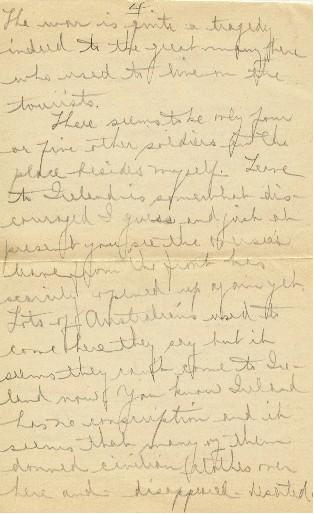 4.
The war is quite a tragedy
indeed to the great many here
who used to live on the
tourists.
There seems to be only four
or five other soldiers in the
place besides myself. Leave
to Ireland is somewhat dis-
couraged I guess and just at
present you see the
leave from the front has
scarcely opened up again yet.
Lots of Australians used to
come here they say but it
seems they can't come to Ire-
land now. You know Ireland
has no conscription and it
seems that many of them
donned civilian clothes over
here and disappeared - deserted.